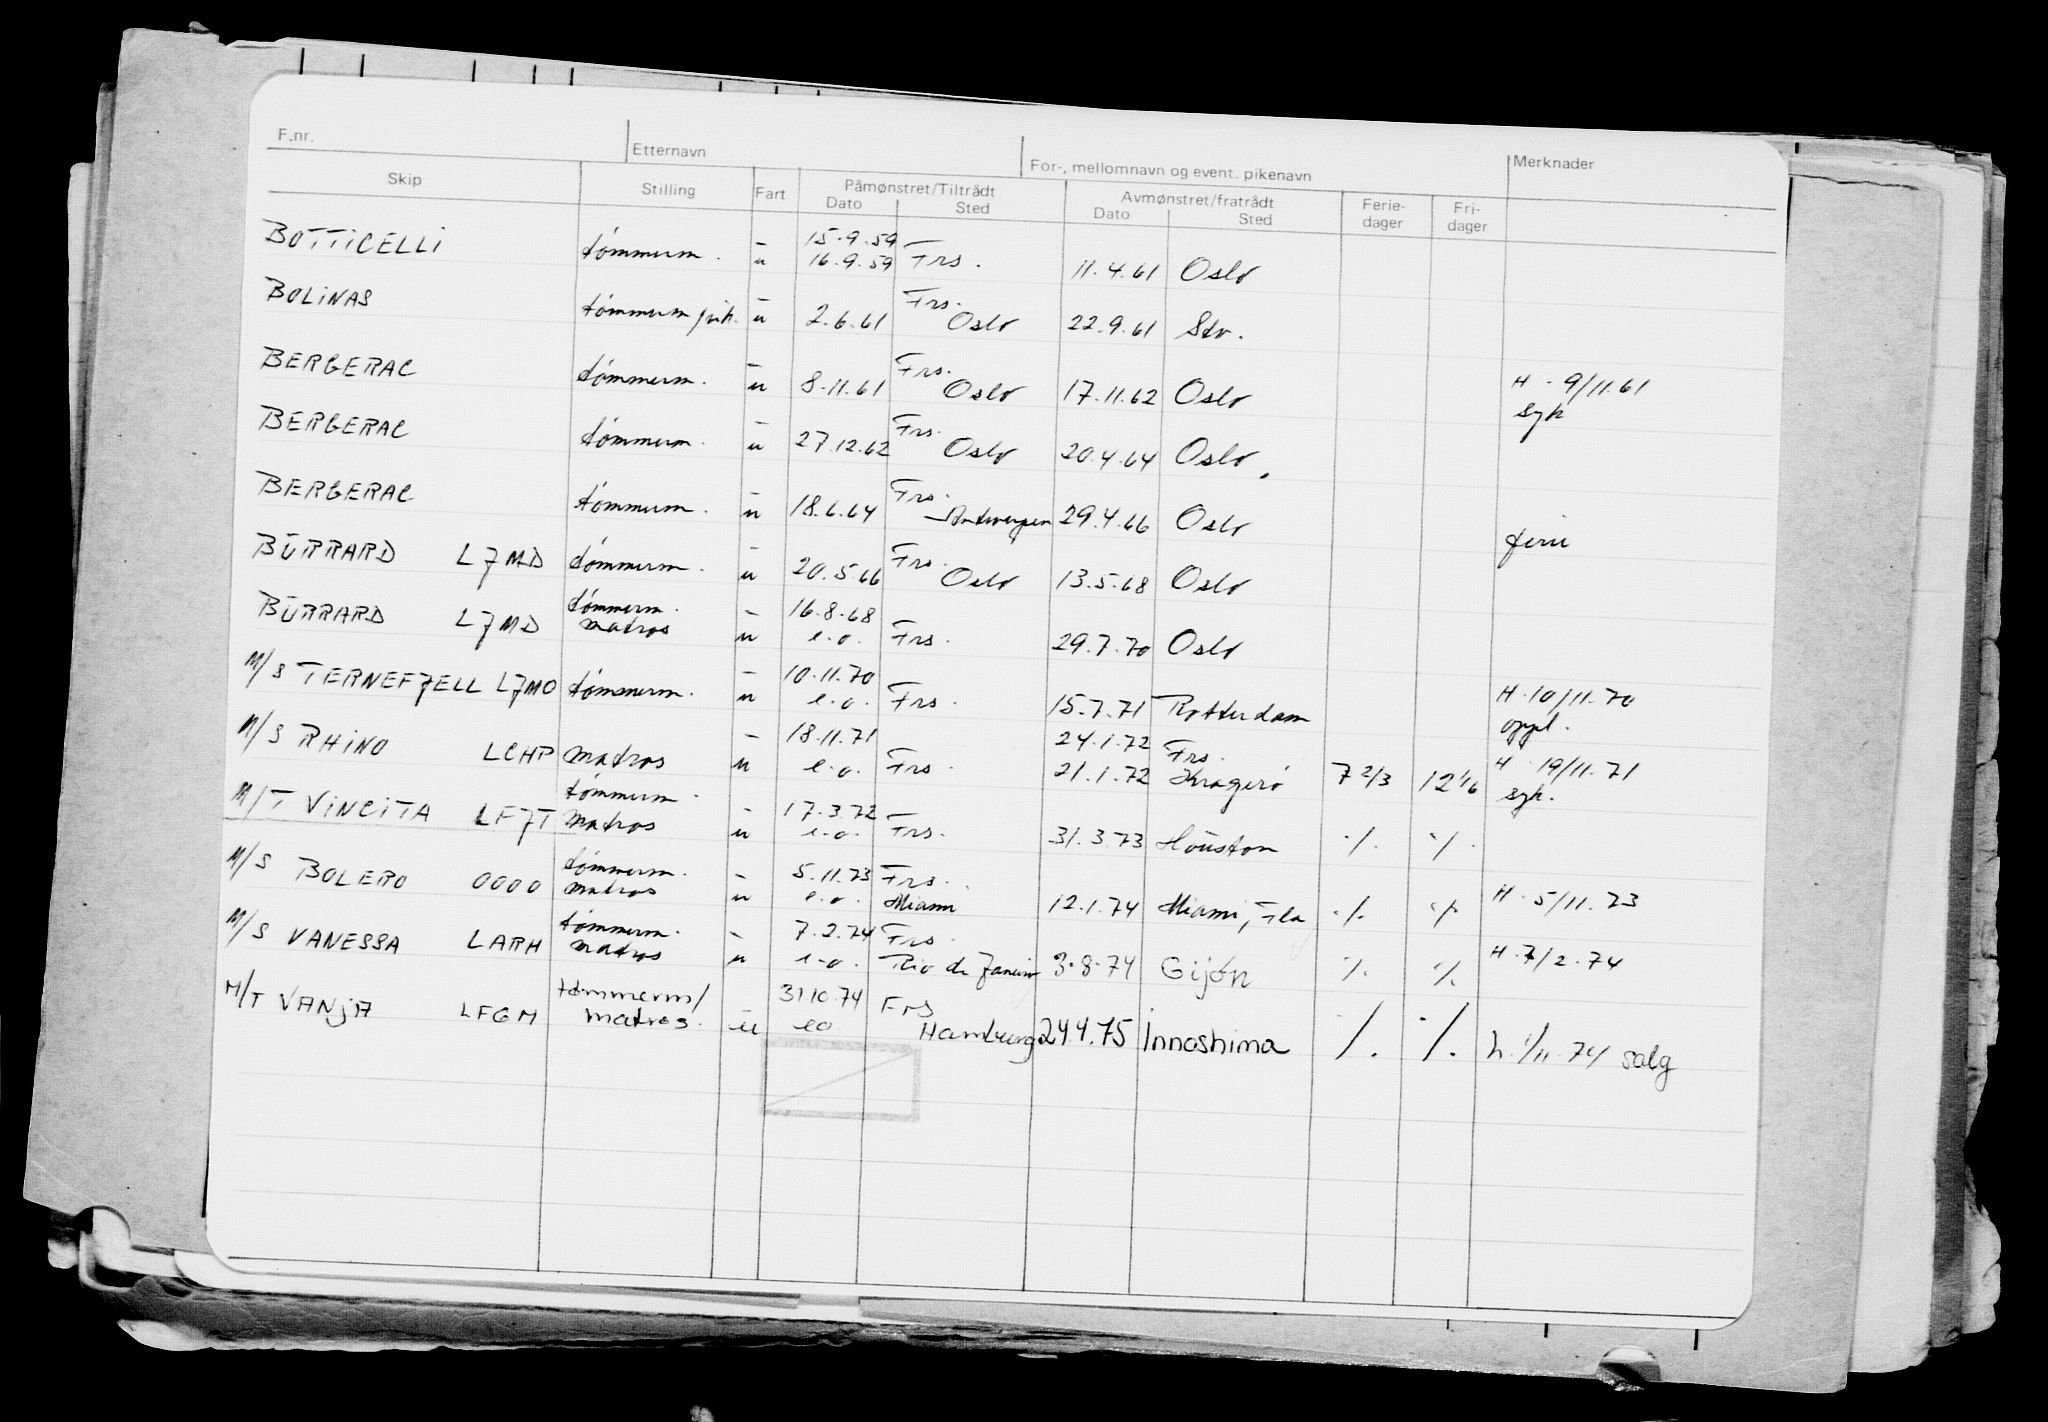 F.nr. Etternavn For-, mellomnavn og event. pikenavn Merknader
Skip Stilling Fart Påmønstret/Tiltrådt Avmønstret/fratrådt Ferie- Fri-
Dato Sted Dato Sted dager dager
15.9.59
BOTTICELLI tømmerm. u 16.9.59 Frs. 11.4.61 Oslo
Frs.
BOLINAS tømmerm u 2.6.61 Oslo 22.9.61 Stv.
Frs.
BERGERAC tømmerm. u 8.11.61 Oslo 17.11.62 Oslo H. 9/11.61
syk
Frs.
BERGERAC tømmerm. u 27.12.62 Oslo 20.4.64 Oslo.
Frs.
BERGERAC tømmerm. u 18.6.64 Antwerpen 29.4.66 Oslo ferie
Frs.
BURRARD LJMD tømmerm. u 20.5.66 Oslo 13.5.68 Oslo
tømmerm. 16.8.68
BURRARD LJMD matros u e.o. Frs. 29.7.70 Oslo
10.11.70
M/S TERNEFJELL LJMO tømmerm. u e.o. Frs. 15.7.71 Rotterdam H. 10/11.70
oppl.
18.11.71 24.1.72 Frs.
M/S RHINO LCHP matros u e.o. Frs. 21.1.72 Kragerø 7 2/3 12 1/6 H. 19/11.71
syk.
tømmerm. 17.3.72
M/T VINCITA LFJT matros u e.o. Frs. 31.3.73 Houston ·/. ·/.
tømmerm. 5.11.73 Frs.
M/S BOLERO OOOO matros u e.o. Miami 12.1.74 Miami, Fla ·/. ·/. H. 5/11.73
tømmerm. 7.2.74 Frs.
M/S VANESSA LARH matros u e.o. Rio de Janeiro 3.8.74 Gijón ·/. ·/. H. 7/2.74
tømmerm/ 31.10.74 Frs
M/T VANJA LFGM matros. u eo Hamburg 24.4.75 Innoshima ·/. ·/. h. 1/11.74 salg